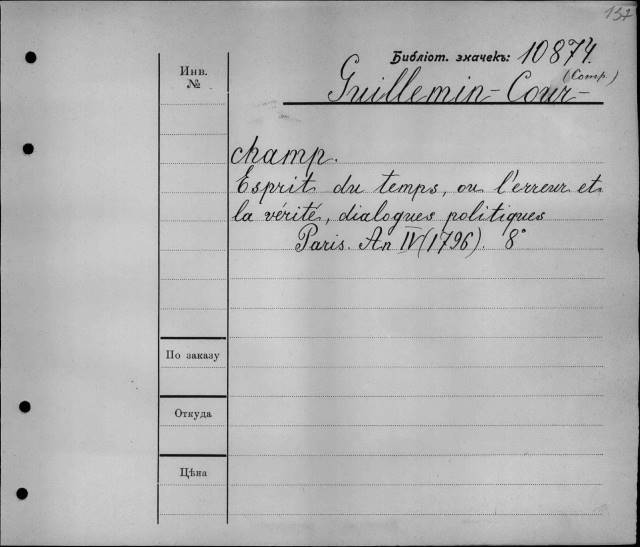 137
Библіот. значекъ: 10874.
Инв.
№
(Comp.)
Guillemin-Cour-
champ.
Esprit du temps, ou l'erreur et
la vérité, dialogues politiques
Paris. An IV (1796). 8°
По заказу
Откуда
Цѣна